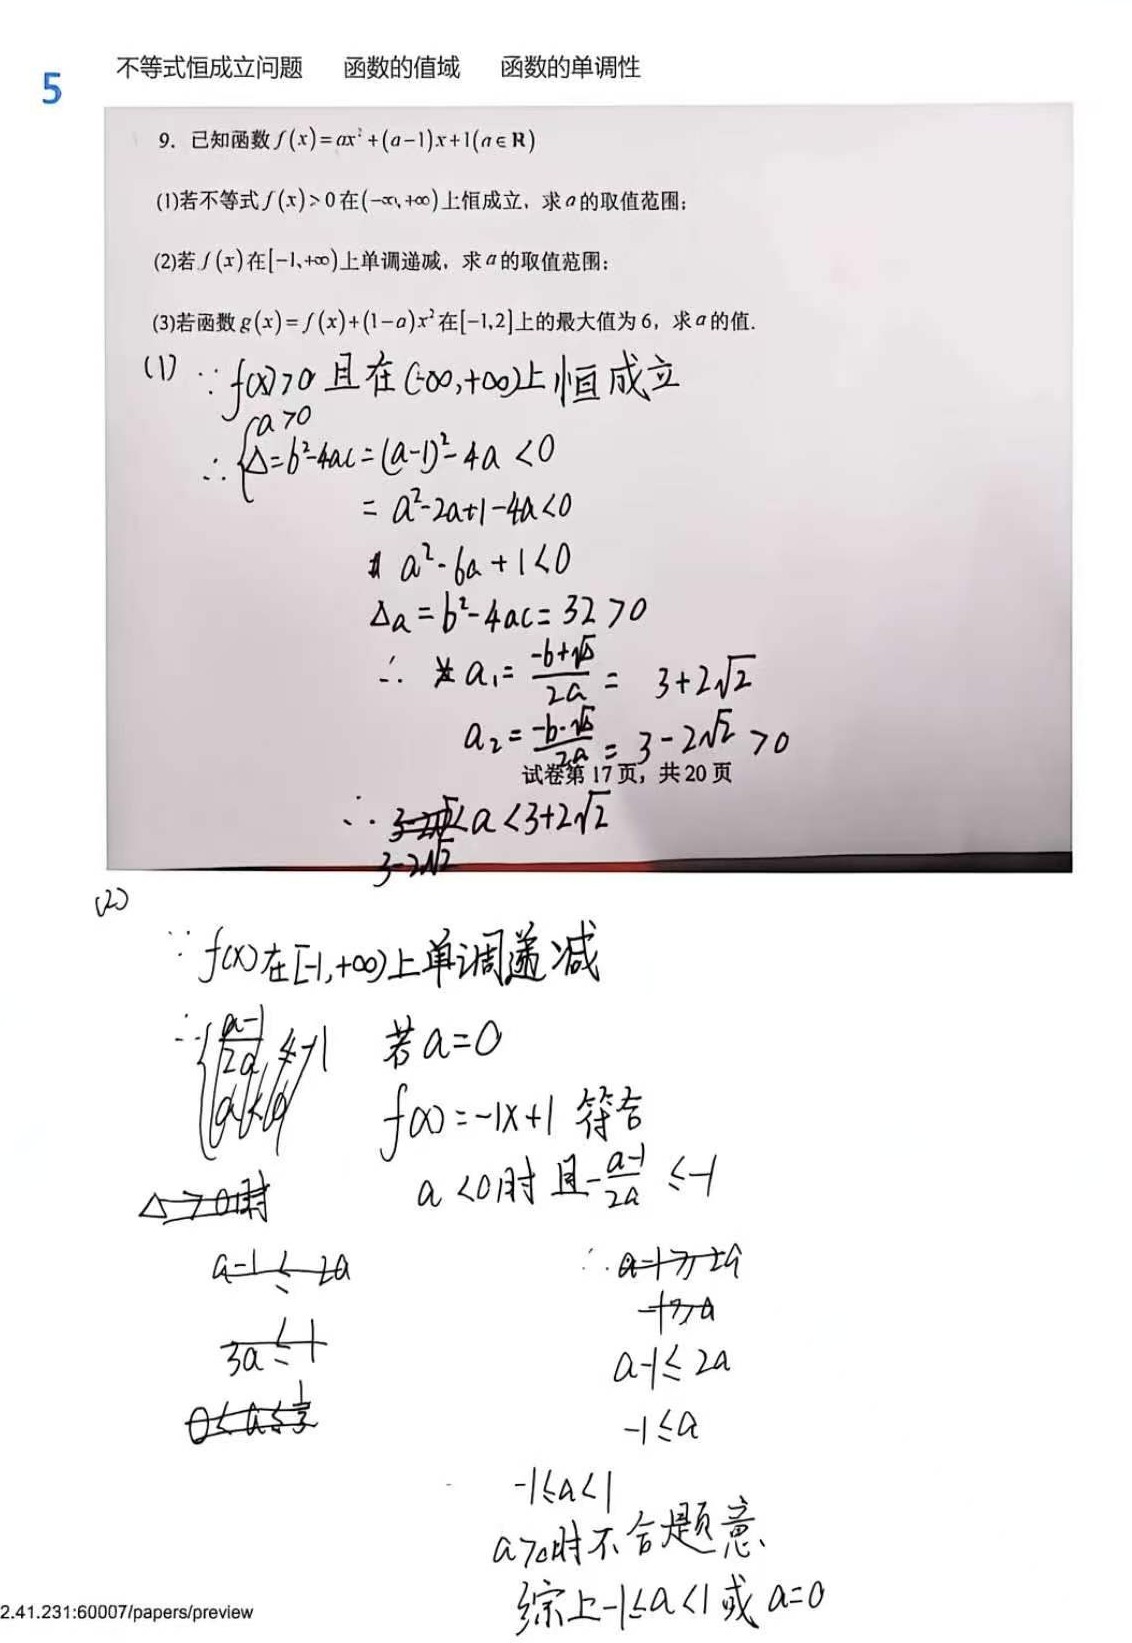 5
不等式恒成立问题 函数的值域 函数的单调性
9. 已知函数f(x)=ax²+(a-1)x+1(a∈R)
(1)若不等式f(x)>0在(-∞,+∞)上恒成立，求a的取值范围；
(2)若f(x)在[-1,+∞)上单调递减，求a的取值范围；
(3)若函数g(x)=f(x)+(1-a)x²在[-1,2]上的最大值为6，求a的值.
(1) ∵f(x)>0且在(-∞,+∞)上恒成立
a>0
∴{Δ=b²-4ac=(a-1)²-4a<0
=a²-2a+1-4a<0
a²-6a+1<0
Δa=b²-4ac=32>0
∴ a₁=(-b+√Δ)/2a=3+2√2
a₂=(-b-√Δ)/2a=3-2√2>0
试卷第17页，共20页
∴3-2√2<a<3+2√2
3-2√2
(2)
∵f(x)在[-1,+∞)上单调递减
∴{(a-1)/2a≤-1 若a=0
a<0 f(x)=-1x+1 符合
a<0时且-(a-1)/2a≤-1
Δ>0时
a-1≤2a ∴a-1≥2a
-1≥a
3a≤1 a-1≤2a
0≤a≤1/3 -1≤a
-1≤a<1
a>0时不合题意、
综上-1≤a<1或a=0
2.41.231:60007/papers/preview